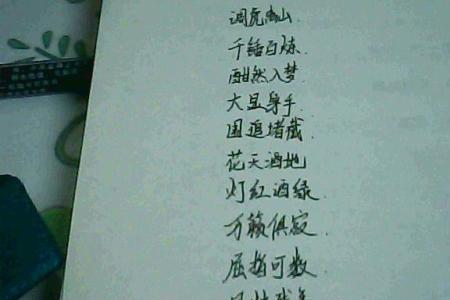 调虎离山
千锤百炼
酣然入梦
大显身手
围追堵截
花天酒地
灯红酒绿
万籁俱寂
屈指可数